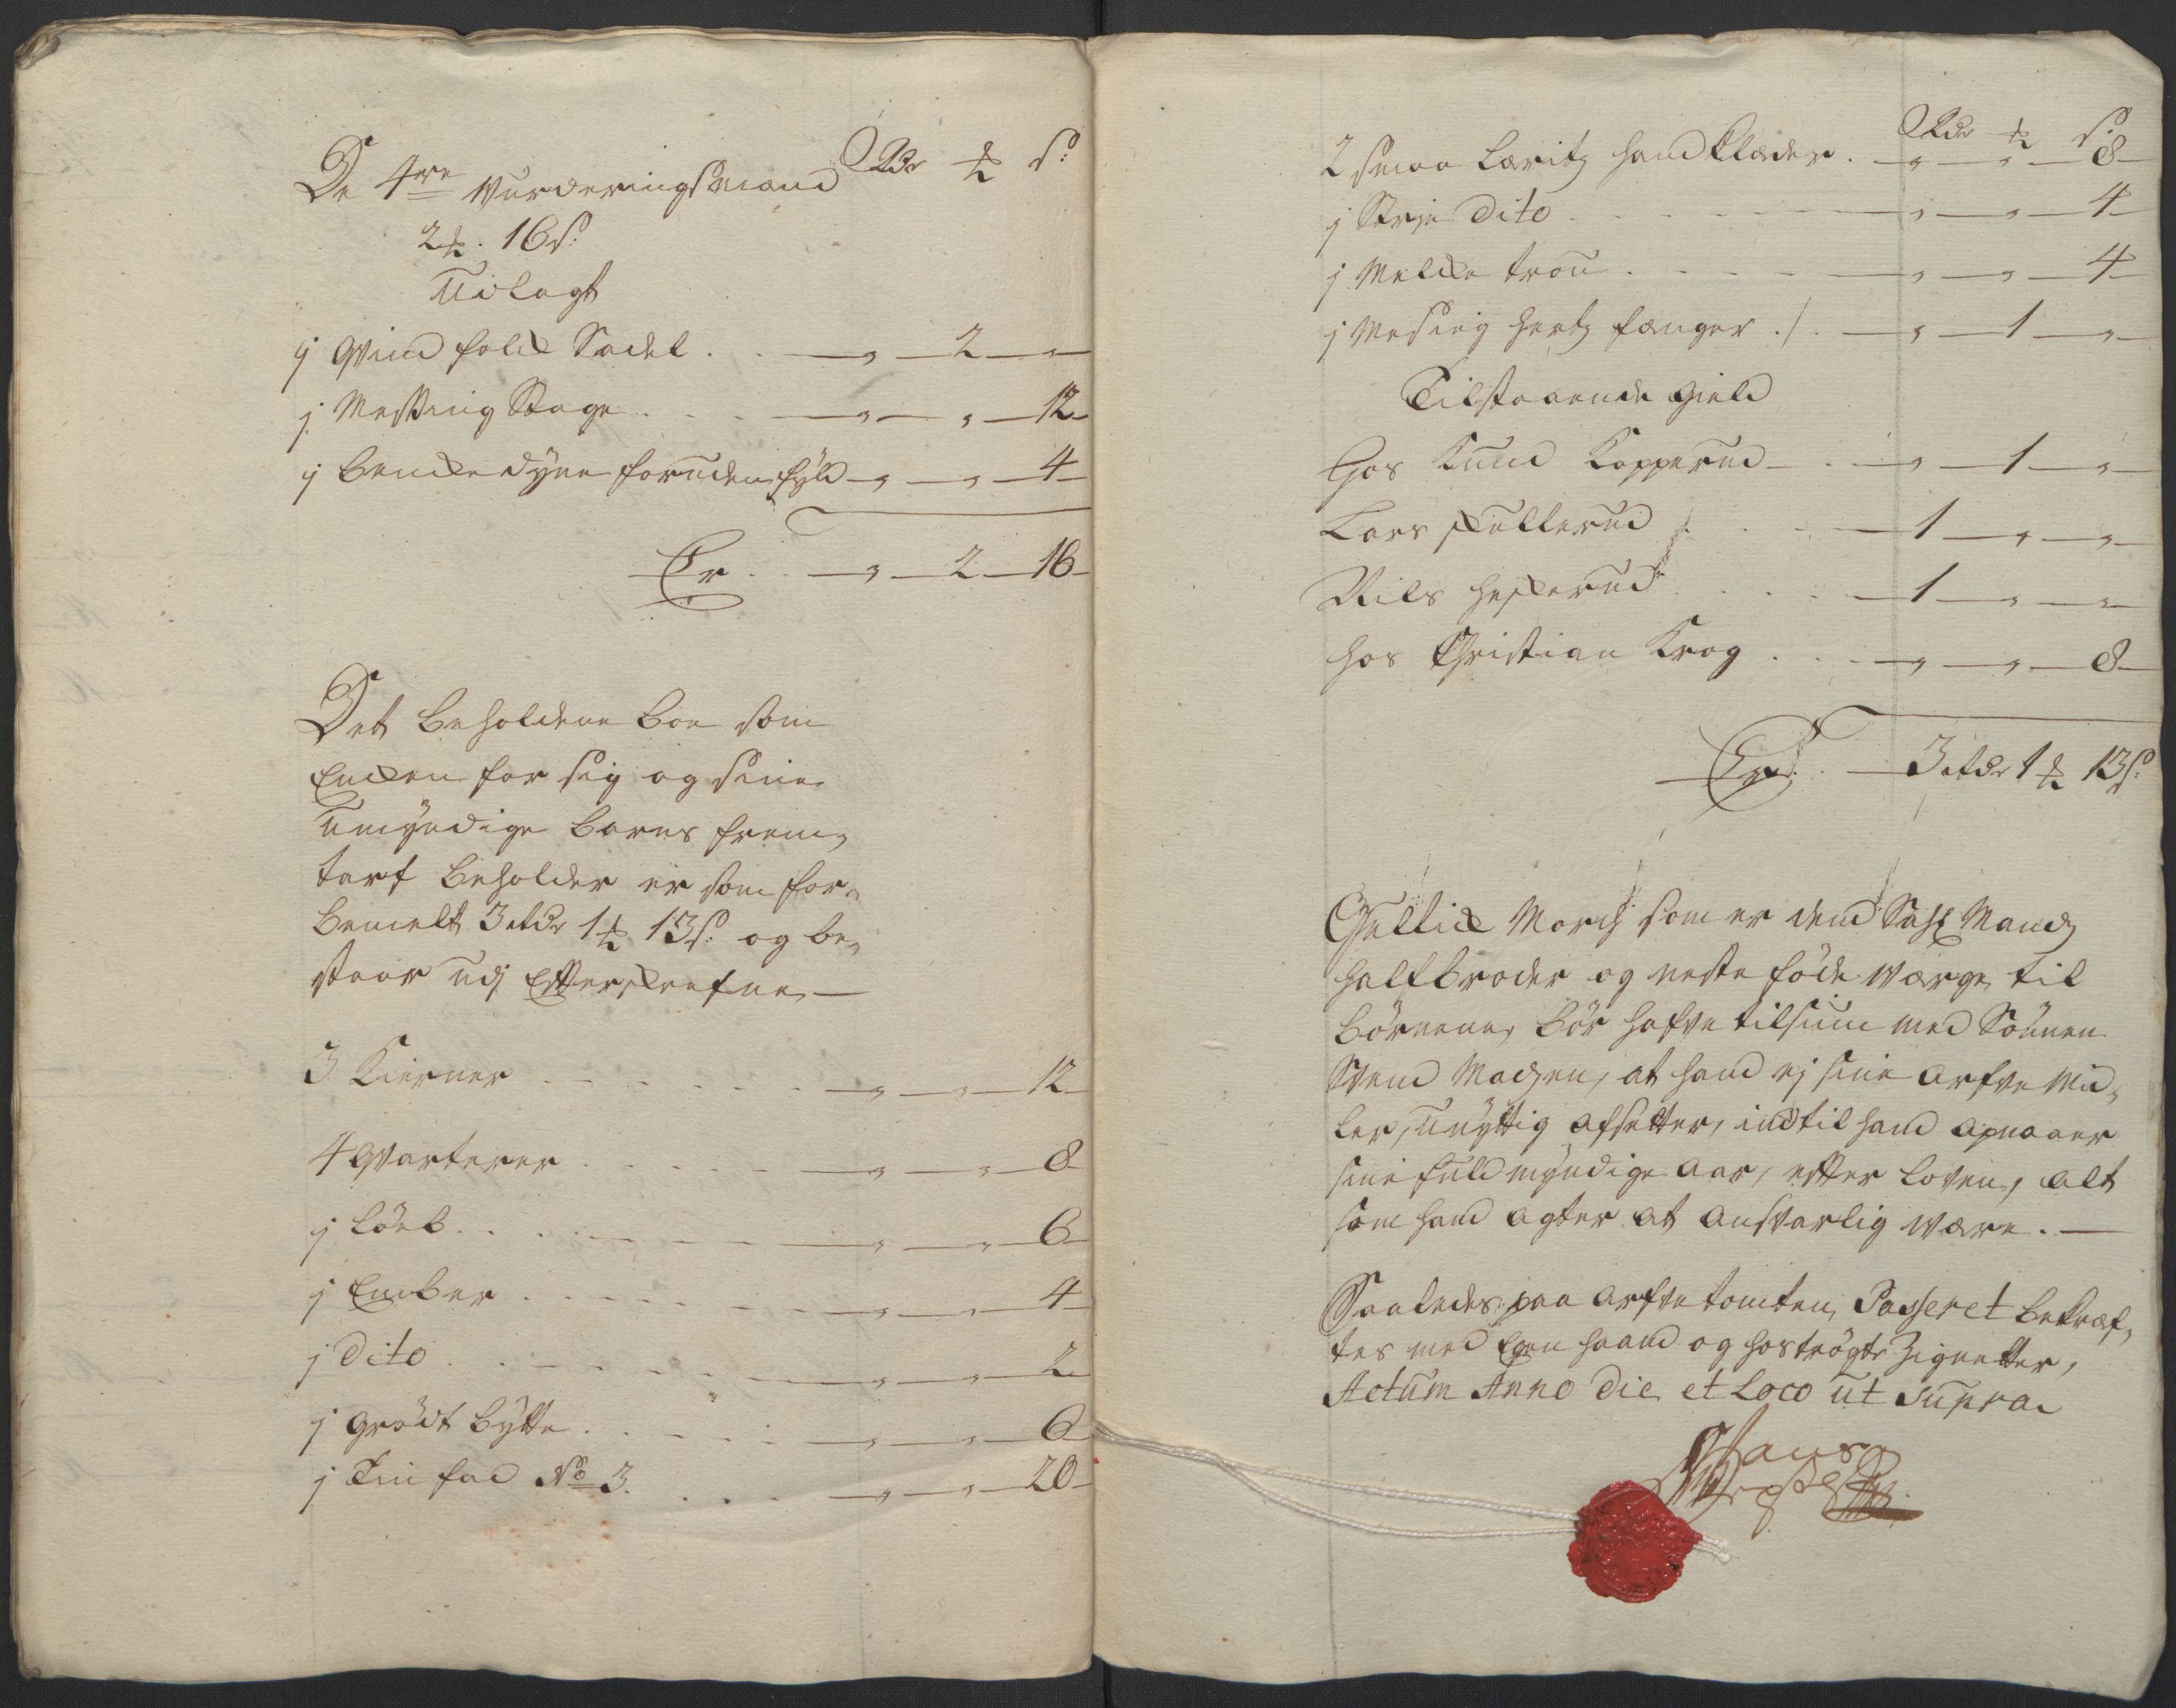 De 4re Vurderingsmænd Rdr ƕ s:
2 ƕ. 16 s:
Udlagt
j Qvind folck Sadel . . — „ — 2 — „
j Messing Stage . . . — „ — „ — 12
j benckedyne foruden fyld — „ — „ — 4
Er . . — „ — 2 — 16
Det beholdene boe som
Encken for sig og sine
umyndige børns frem-
tarf beholder er som for-
bemelt 3 rdr 1 ƕ 13 s: og be-
staar udj Efterskrefne —
3 Kierner . . . — „ — „ — 12
4 Qvarterer . . . — „ — „ — 8
j Löeb . . . — „ — „ — 6
j Ember . . . — „ — „ — 4
j Dito . . . — „ — „ — 2
j grödt bytte . . . — „ — „ — 6
j Tin fad No 3. . . . — „ — „ — 20
Rdr ƕ s:
2 smaa Lærritz handklæder . — „ — „ — 8
j Strie Dito . . . — „ — „ — 4
j Melcke trou . . . — „ — „ — 4
j Messing hertz fænger ./. — „ — 1 — „
Tilstaaende gield
Hos Knud Kopperud — . — „ — 1 — „
Lars skullerud . . — 1 — „ — „
Nils heskerud . . . — 1 — „ — „
hos Christian Krog . . . — „ — „ — 8
Er . . — 3 rdr 1 ƕ 13 s:
Gullick Morch som er dend Sahl: Mands
halfbroder og neste föde værge til
börnene, bör hafve tilsiun med Sönnen
Svend Madsen, at hand ej sine arfve mid-
ler, unyttig afsetter, indtil hand opnaaer
sine fuldmyndige aar, efter loven, alt
som hand agter at ansvarlig være. —
Saaledes paa arfve tomten, Passeret bekræf-
tes med Egen haand og hoströgte Zignetter,
Actum Anno Die et Loco ut supra
Hans